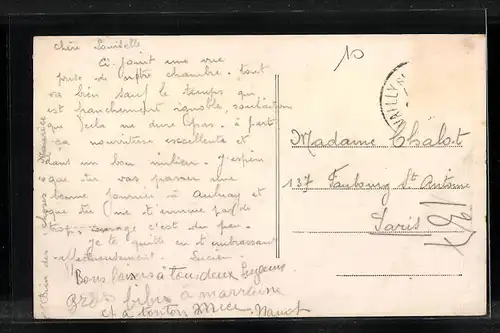 chère Louisette
Ci-joint une vue
prise de notre chambre. tout
va bien sauf le temps qui
est franchement ignoble, souhaitons
que cela ne dure pas. à part
ça nourriture excellente et
dans un bon milieu. J'espère
que tu vas passer une
bonne journée à Aulnay et
que tu ne t'ennuie pas de
trop. courage c'est du peu.
Je te quitte en t'embrassant
affectueusement. Lucien
Bons baisers à tou deux
gros bibis à marraine
et à tonton
bien des choses à Maurice
10
MAILLY
Madame Châlot
137 Faubourg St Antoine
Paris